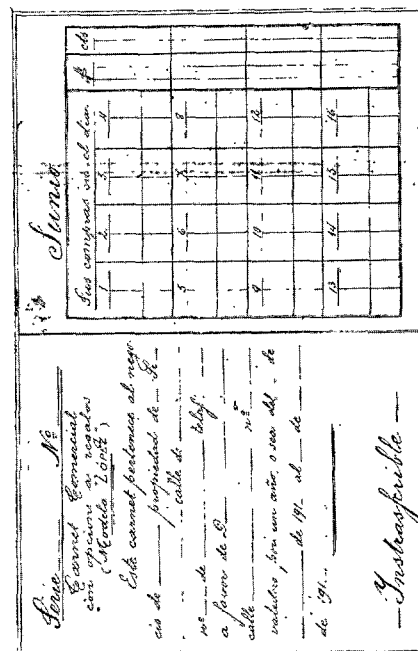 Serie Nº
Carnet Comercial
con opcion a regalos
(Modelo López)
Este carnet pertenece al nego-
cio de propiedad de
calle de
nº de telef.
a favor de D.
calle nº
valedero por un año, o sea del de
de 191 al de
de 191
Instrasferible
Junio
Sus compras en el dia
$ cts
1 2 3 4
5 6 7 8
9 10 11 12
13 14 15 16